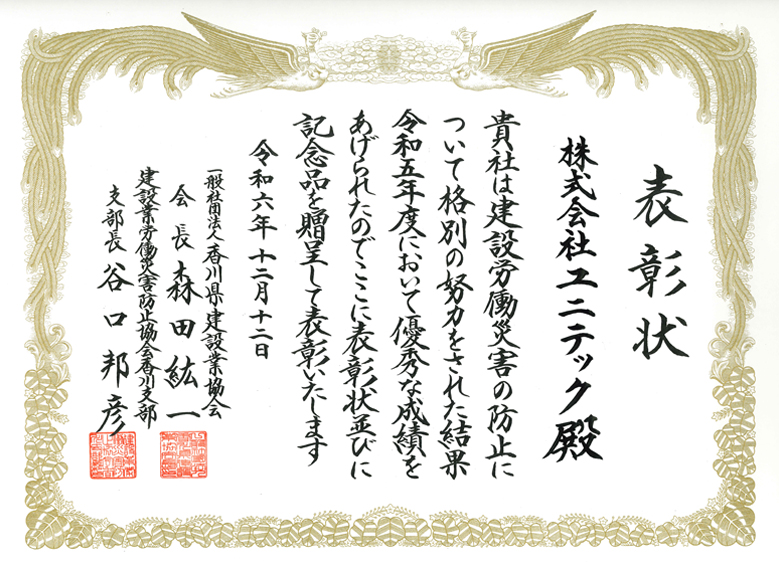 表彰状
株式会社ユニテック殿
貴社は建設労働災害の防止に
ついて格別の努力をされた結果
令和五年度において優秀な成績を
あげられたのでここに表彰状並びに
記念品を贈呈して表彰いたします
令和六年十二月十二日
一般社団法人香川県建設業協会
会長森田紘一
建設業労働災害防止協会香川支部
支部長谷口邦彦